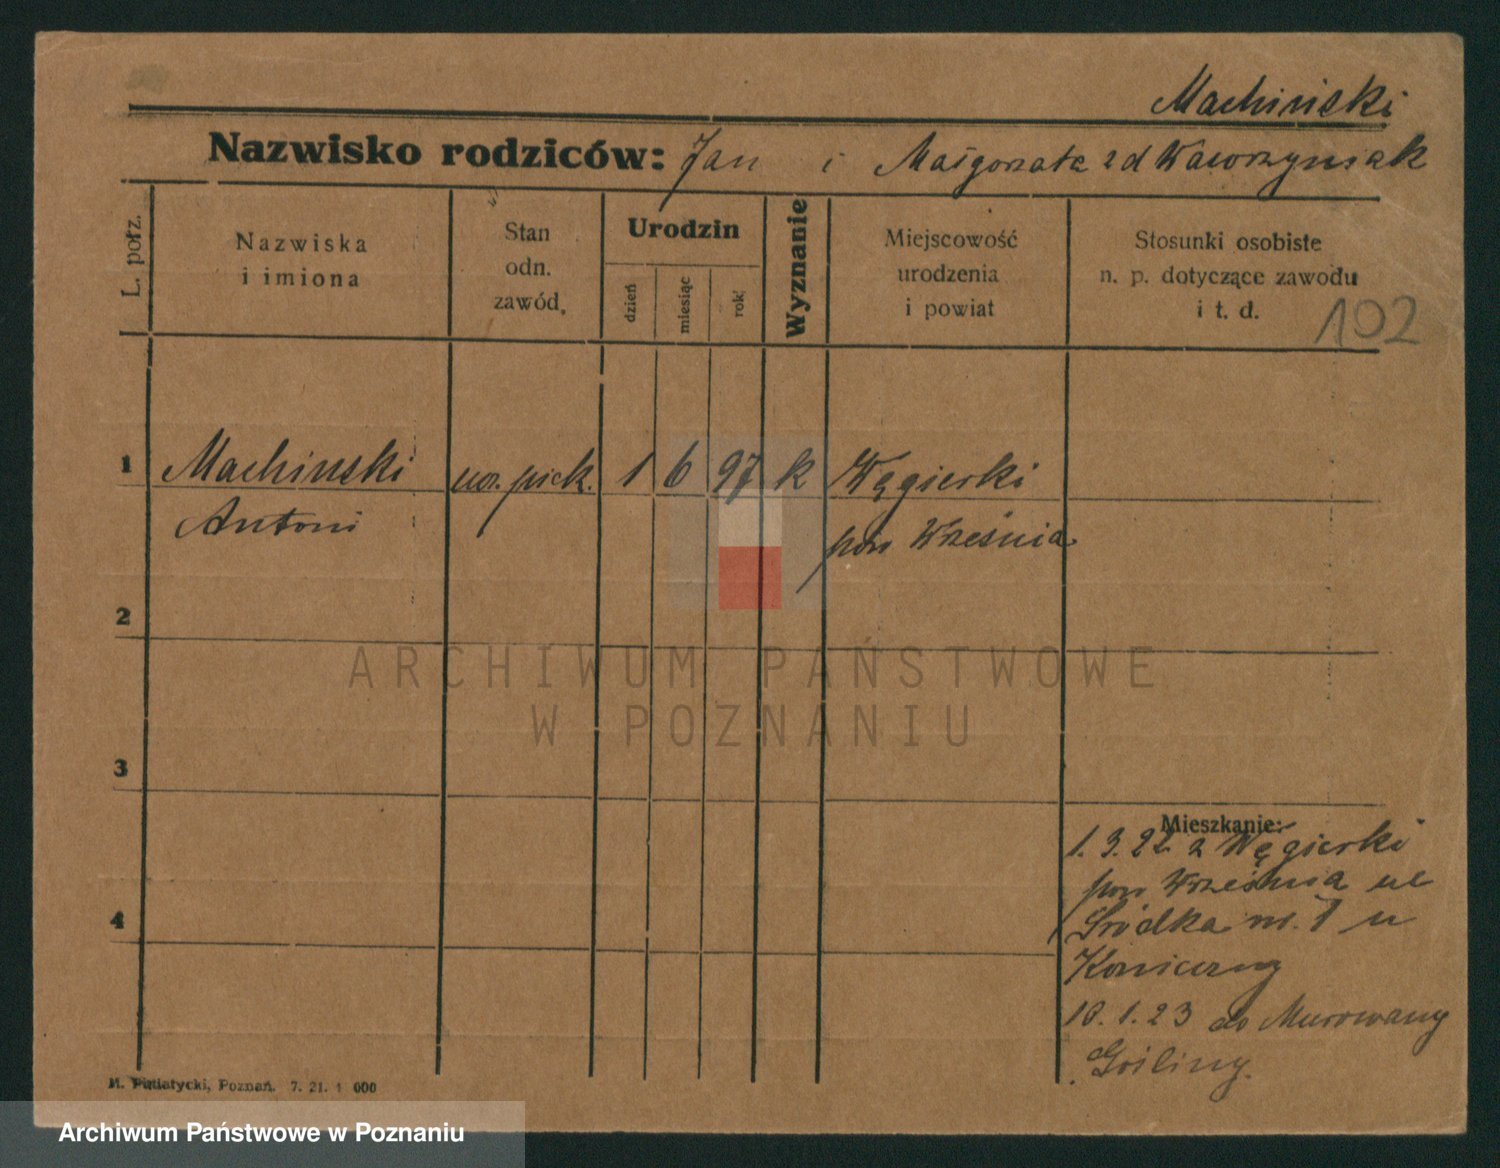 Machiński
Nazwisko rodziców: Jan i Małgorzata zd Wawrzyniak
L. porz.
Nazwiska
i imiona
Stan
odn.
zawód.
Urodzin
dzień
miesiąc
rok
Wyznanie
Miejscowość
urodzenia
i powiat
Stosunki osobiste
n. p. dotyczące zawodu
i t. d.
102
1 Machinski 1 6 97 k Węgierki
Antoni pow Września
2
3
4
Mieszkanie:
1. 3. 22 z Węgierki
pow Września
Śródka nr. 1 u
10. 1. 23 do Murowany
Gośliny.
M. Putiatycki, Poznań. 7. 21. 1 000
ARCHIWUM PAŃSTWOWE
W POZNANIU
Archiwum Państwowe w Poznaniu